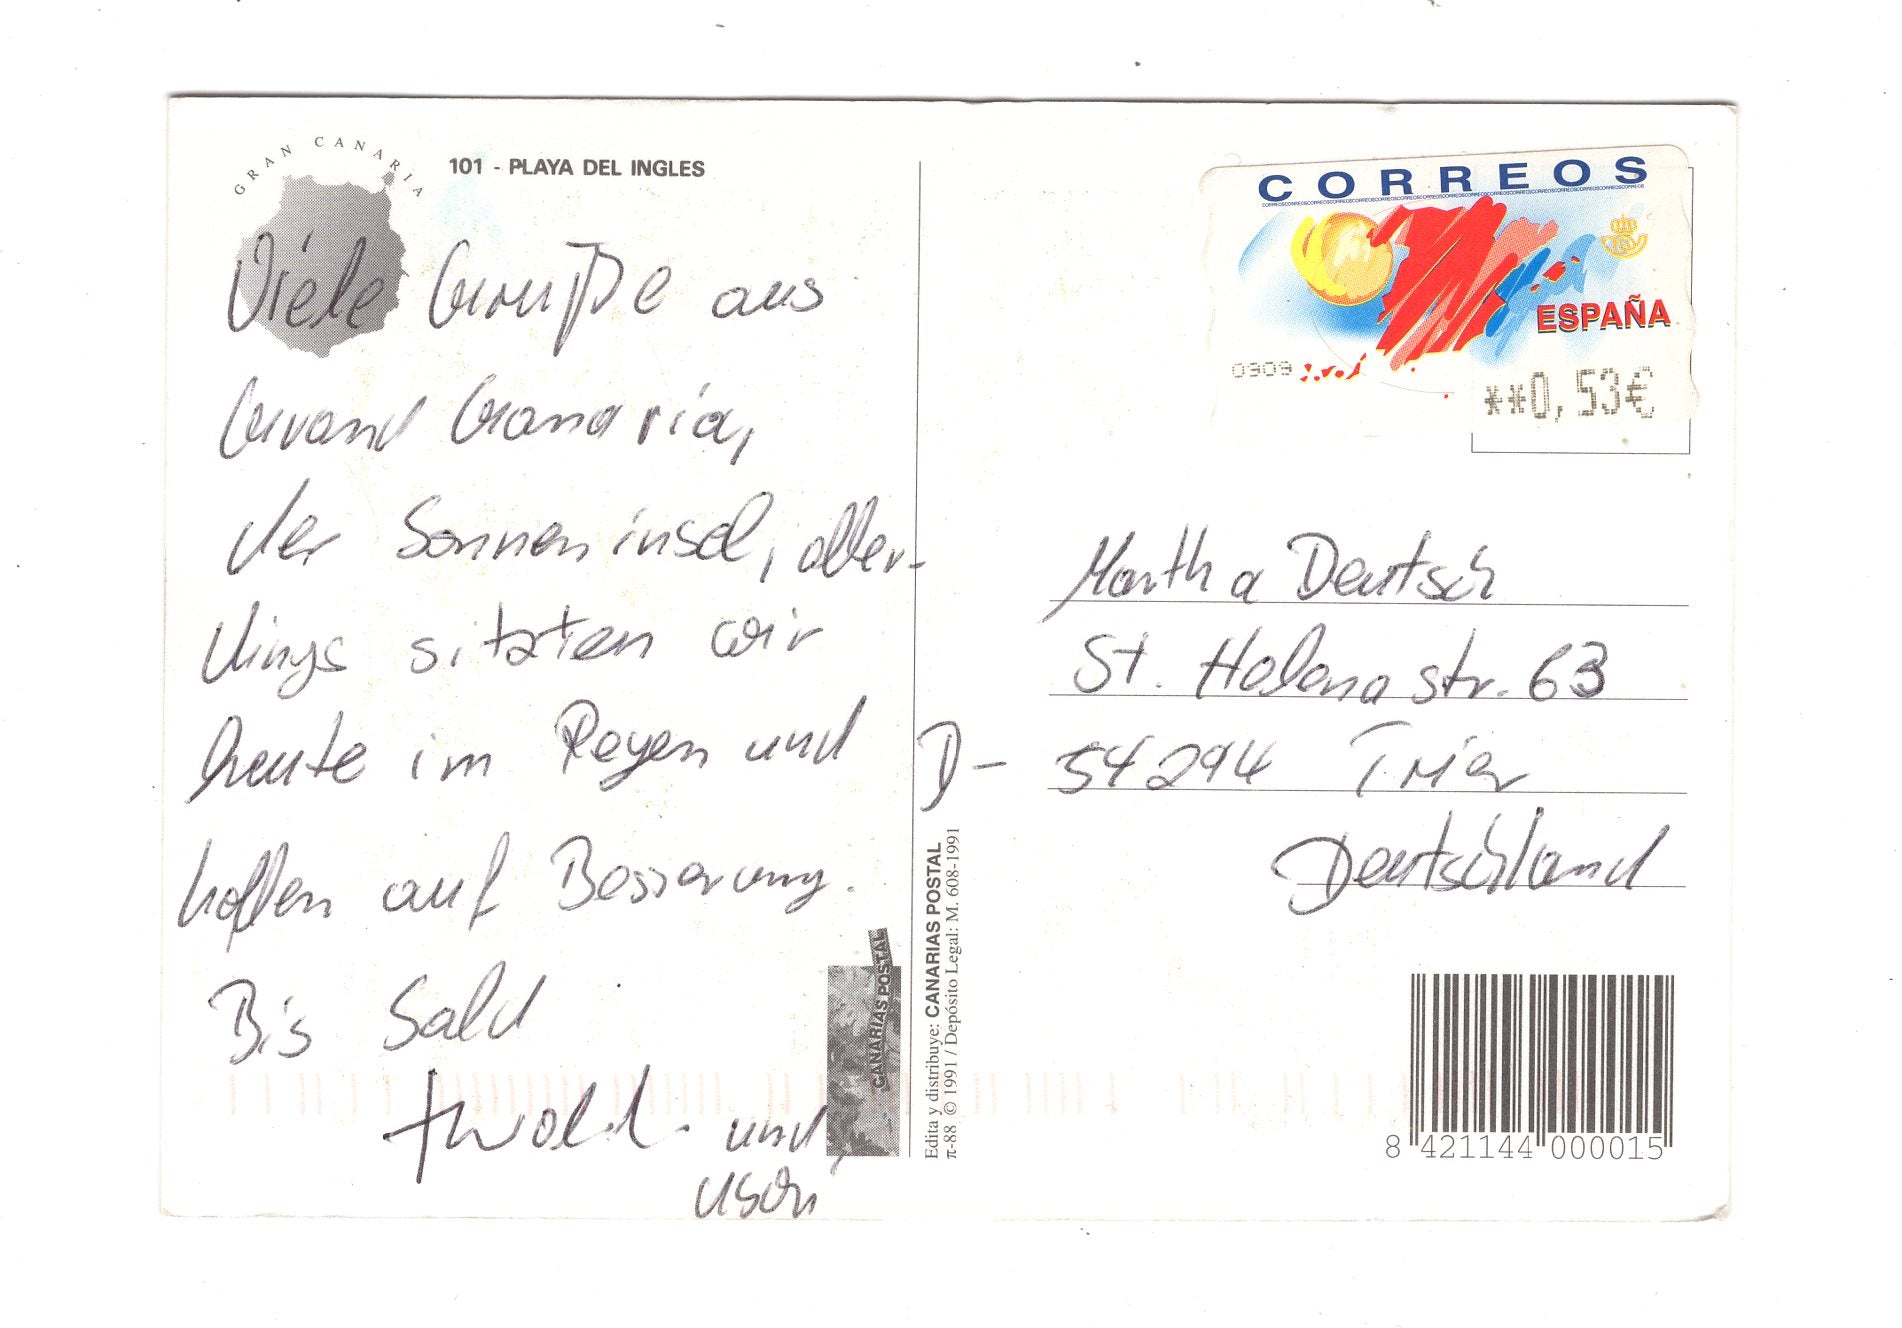 GRAN CANARIA
101 - PLAYA DEL INGLES
Viele Grüße aus
Grand Canaria,
der Sonneninsel, aller-
dings sitzten wir
heute im Regen und
hoffen auf Besserung.
Bis bald
und
CANARIAS POSTAL
Edita y distribuye: CANARIAS POSTAL
π-88 © 1991 / Depósito Legal: M. 608-1991
CORREOS
ESPAÑA
0309
**0,53€
Martha Deutsch
St. Helenastr. 63
D- 54294 Trier
Deutschland
8 421144 000015